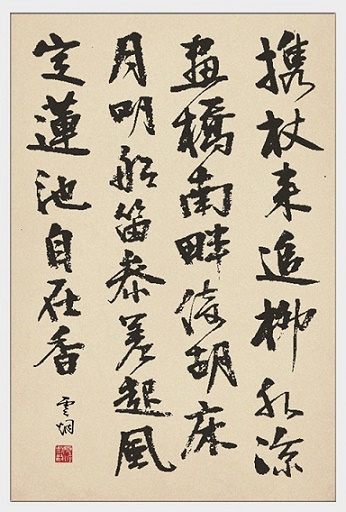 携杖来追柳外涼
畫橋南畔倚胡床
月明船笛參差起風
定蓮池自在香